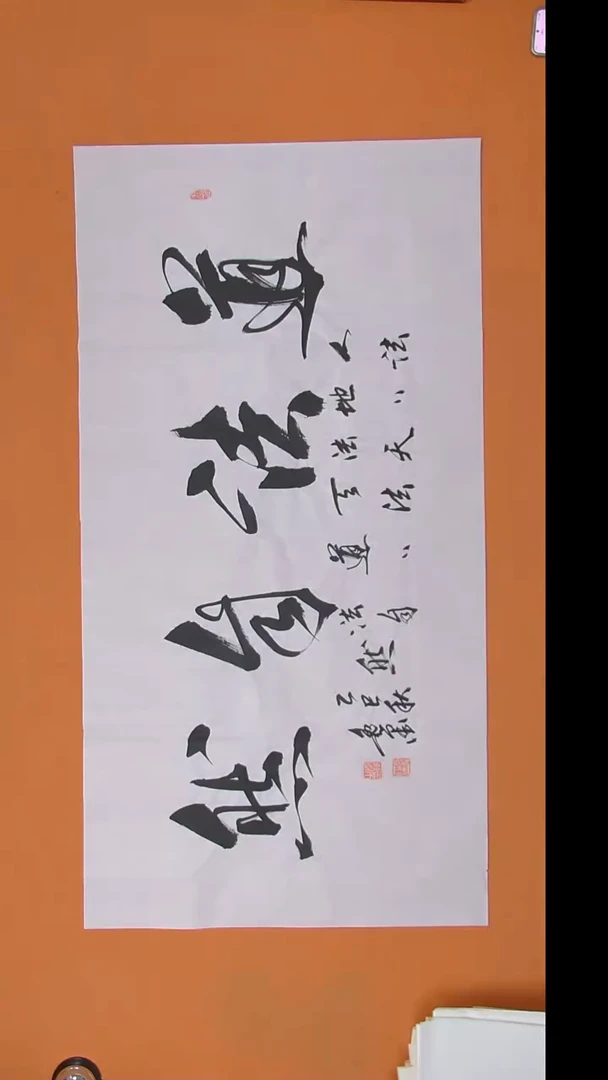 道法自然
人法
地〻
法天
天法
道〻
法自
然
乙巳秋